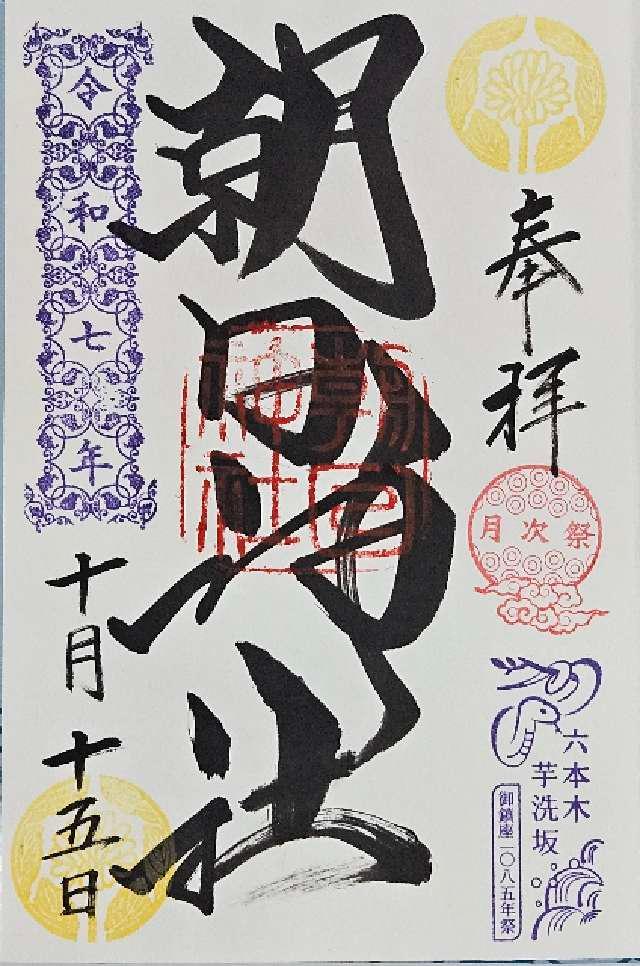 奉拝
月次祭
六本木
芋洗坂
御鎮座一〇八五年祭
朝日神社
朝日
神社
令和七年
十月十五日